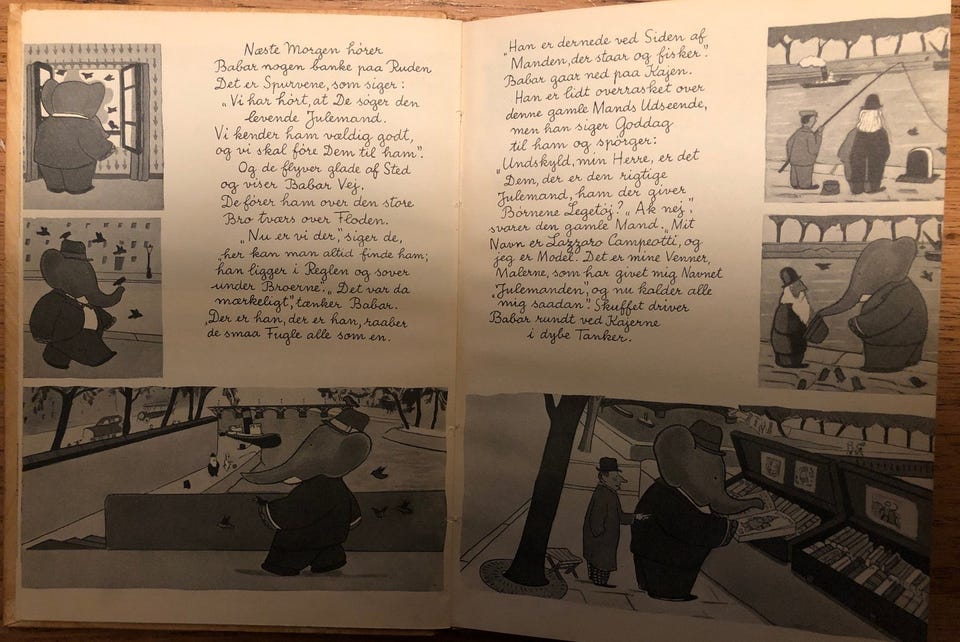 Næste Morgen hører
Babar nogen banke paa Ruden
Det er Spurvene, som siger:
„Vi har hørt, at De søger den
levende Julemand.
Vi kender ham vældig godt,
og vi skal føre Dem til ham”.
Og de flyver glade af Sted
og viser Babar Vej.
De fører ham over den store
Bro tværs over Floden.
„Nu er vi der,” siger de,
„her kan man altid finde ham;
han ligger i Reglen og sover
under Broerne.” „Det var da
mærkeligt”, tænker Babar.
„Der er han, der er han, raaber
de smaa Fugle alle som en.
„Han er dernede ved Siden af
Manden, der staar og fisker”.
Babar gaar ned paa Kajen.
Han er lidt overrasket over
denne gamle Mands Udseende,
men han siger Goddag
til ham og spørger:
„Undskyld, min Herre, er det
Dem, der er den rigtige
Julemand, ham der giver
Børnene Legetøj?” „Ak nej”,
svarer den gamle Mand. „Mit
Navn er Lazzaro Campeotti, og
jeg er Model. Det er mine Venner,
Malerne, som har givet mig Navnet
„Julemanden”, og nu kalder alle
mig saadan”. Skuffet driver
Babar rundt ved Kajerne
i dybe Tanker.